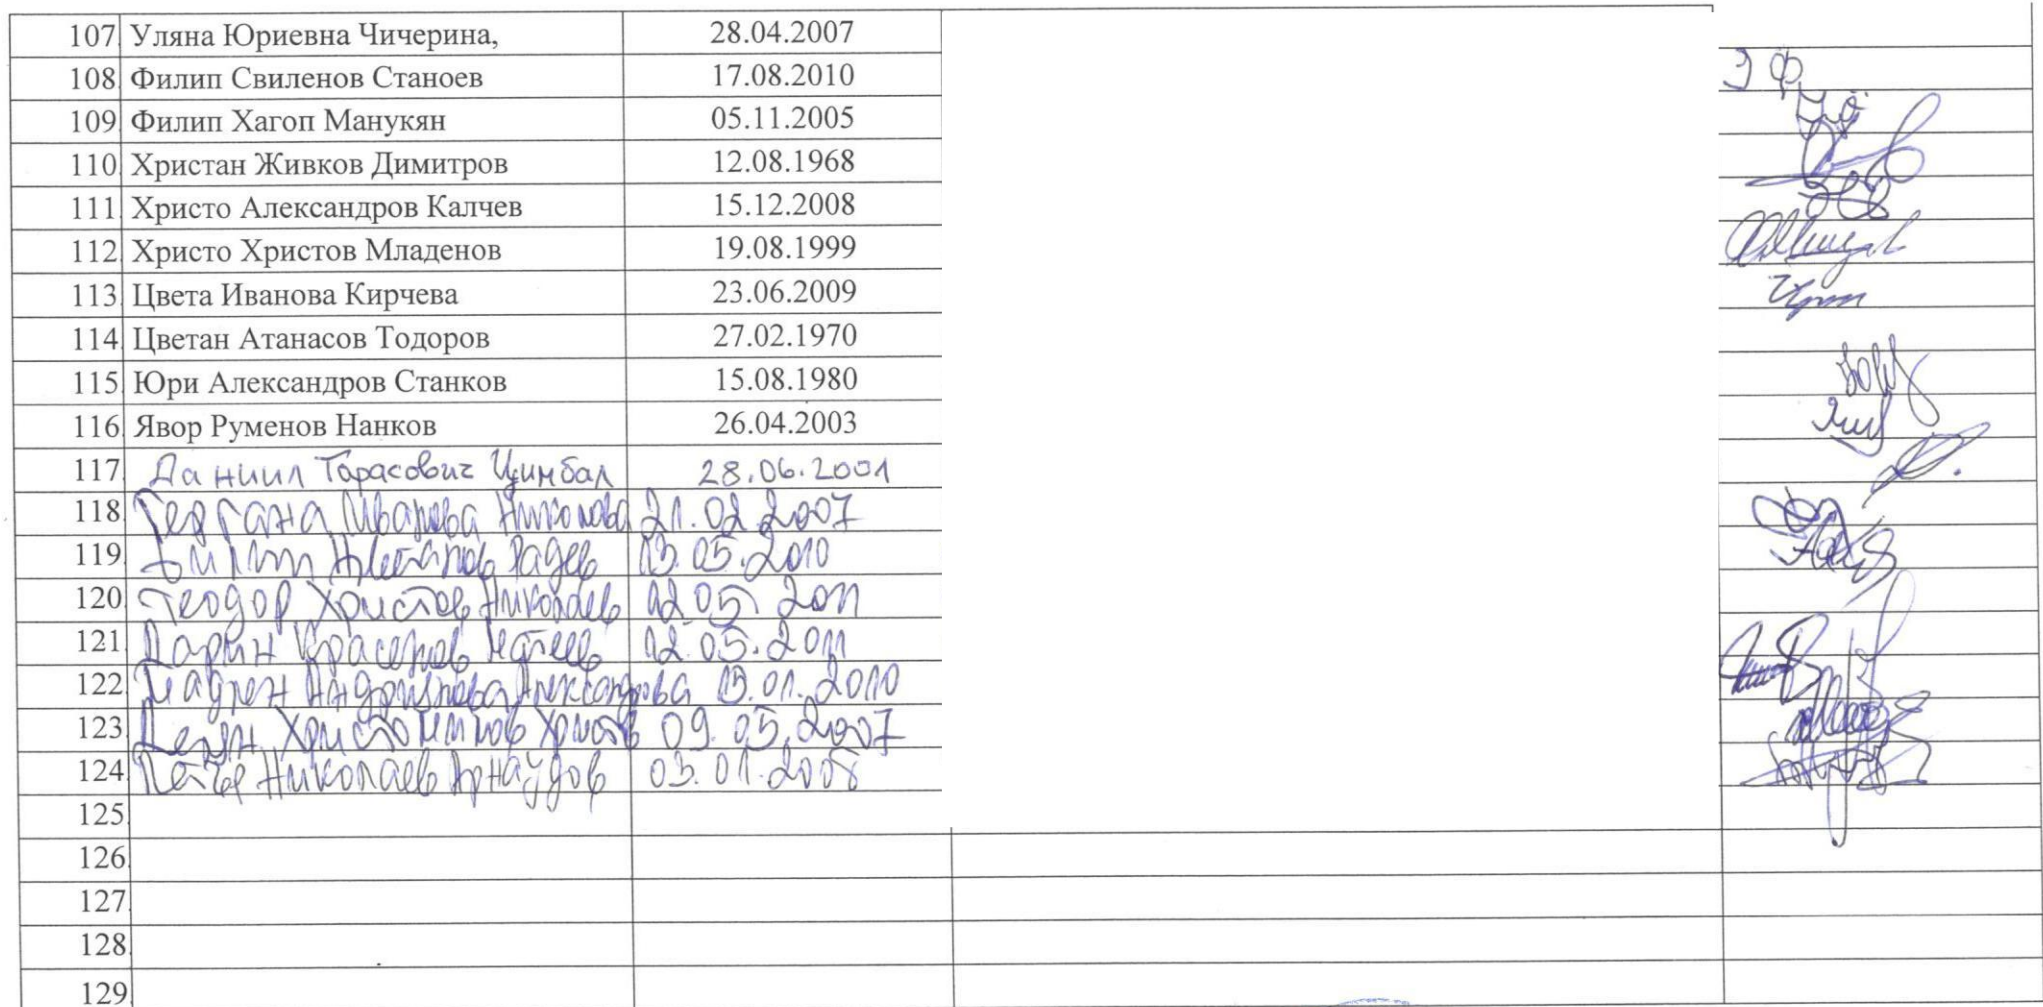 107. Уляна Юриевна Чичерина, 28.04.2007
108. Филип Свиленов Станоев 17.08.2010
109. Филип Хагоп Манукян 05.11.2005
110. Христан Живков Димитров 12.08.1968
111. Христо Александров Калчев 15.12.2008
112. Христо Христов Младенов 19.08.1999
113. Цвета Иванова Кирчева 23.06.2009
114. Цветан Атанасов Тодоров 27.02.1970
115. Юри Александров Станков 15.08.1980
116. Явор Руменов Нанков 26.04.2003
117. Даниил Тарасович Цимбал 28.06.2001
118. Гергана Иванова Николова 21.02.2007
119. Радев 13.05.2010
120. Теодор Христов Николаев 12.05.2011
121. Дарин Красенов 12.05.2011
122. Мадлен Андриянова Александрова 13.01.2010
123. Деян Христомиков Христов 09.05.2007
124. Петър Николаев Арнаудов 03.01.2008
125.
126.
127.
128.
129